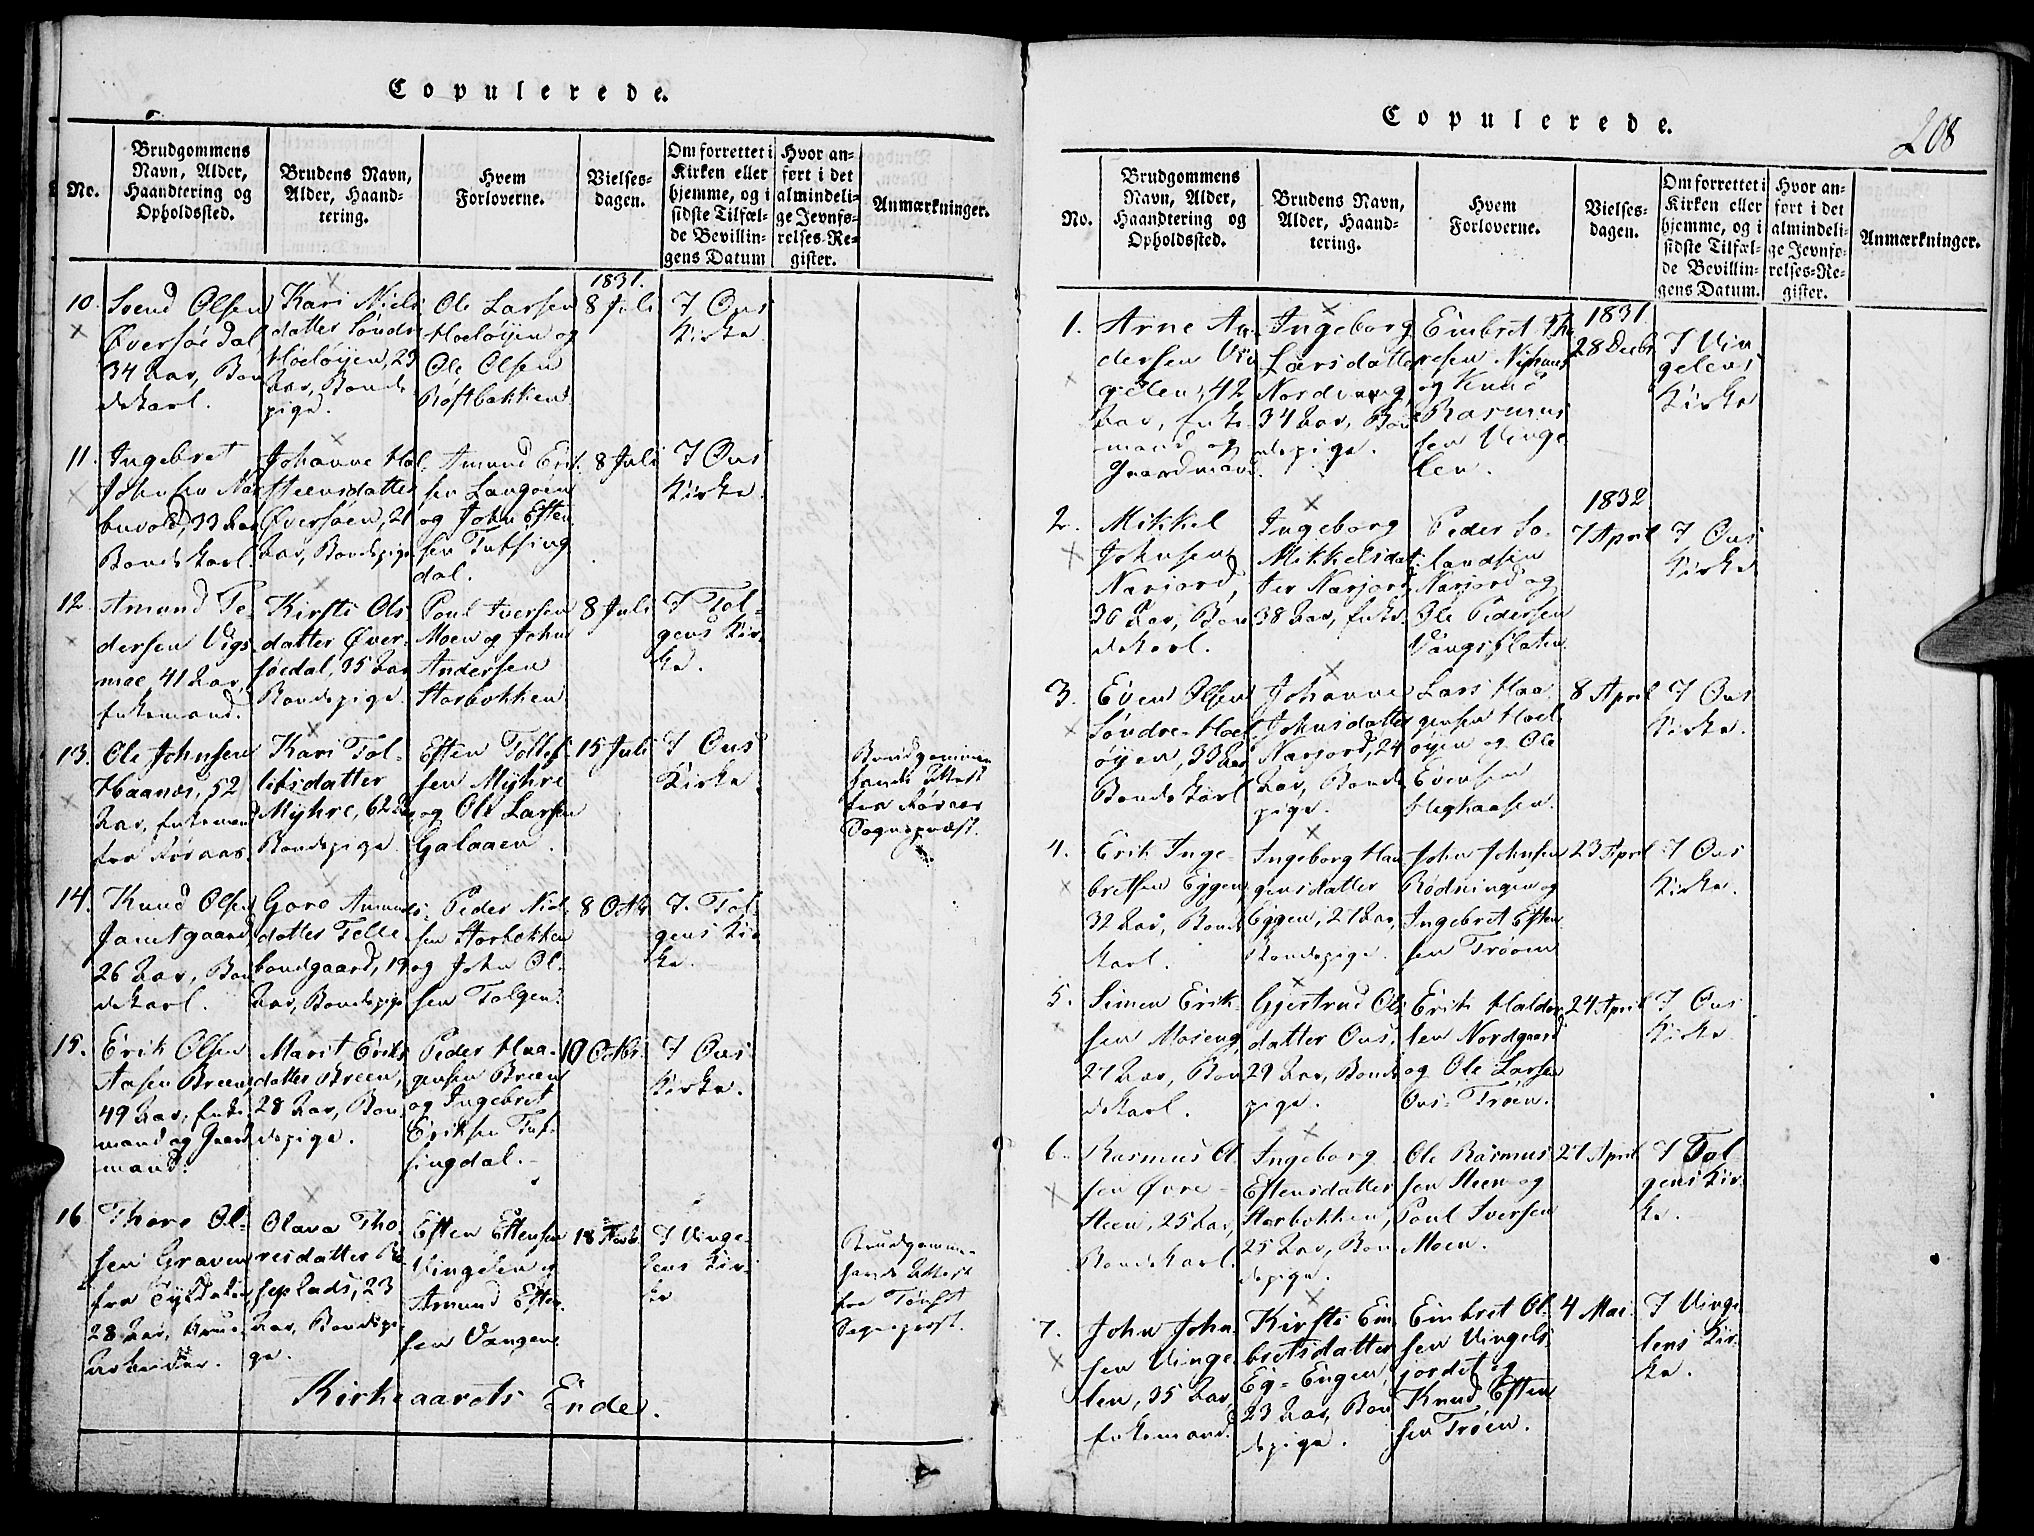 Copulerede.
No.
Brudgommens
Navn, Alder,
Haandtering og
Opholdssted.
Brudens Navn,
Alder, Haand-
tering.
Hvem
Forloverne.
Vielses-
dagen.
Om forrettet i
Kirken eller
hjemme, og i
sidste Tilfæl-
de Bevillin-
gens Datum
Hvor an-
ført i det
almindeli-
ge Jevnfø-
relses-Re-
gister.
Anmærkninger.
1831.
10.
Svend Olsen
Øversøe dal
34 Aar, Bon
dekarl.
Kari Niels
datter Søndr
Hoeløyen, 23
Aar, Bonde
pige.
Ole Larsen
Hoeløyen og
Ole Olsen
Røftbakken
8 Juli
I Ous
Kirke
11.
Ingebret
Johnsen Nar
buvold, 33 Aar
Bondekarl.
Johanne Hol
steensdatter
Øversøen, 21
Aar, Bondepige
Amund Erik
sen Langøen
og John Esten
sen Tufsing
dal.
8 Juli
I Ous
Kirke.
12.
Amund Pe-
dersen Vigs
moe, 41 Aar,
Enkemand.
Kirsti Ols
datter Øver-
søedal, 35 Aar
Bondepige.
Poul Iversen
Moen og John
Andersen
Storbekken
8 Juli
I Tol-
gens Kir-
ke.
13.
Ole Johnsen
Haanæs, 52
Aar, Enkemand
fra Røraas.
Kari Tol-
lefsdatter
Myhre, 62 Aar
Bondepige
Esten Tollef-
sen Myhre
og Ole Larsen
Galaaen.
15 Juli
I Ous
Kirke
Brudgommen
havde Attest
fra Røraas
Sognepræst.
14.
Knud Olsen
Jamtgaard
26 Aar, Bon
dekarl.
Goro Amunds-
datter Telle
bondgaard, 19
Aar, Bondepige
Peder Niel-
sen Storbekken
og John Ol-
sen Tolgen.
8 Octbr
I Tol-
gens Kir
ke.
15.
Erik Olsen
Aasen Breen,
49 Aar, Enke
mand og Gaard
mand.
Marit Eriks
datter Breen,
28 Aar, Bon
depige.
Peder Haa-
gensen Breen
og Ingebret
Eriksen Tuf-
singdal.
10 Octbr.
I Ous
Kirke.
16.
Thore Ol-
sen Graven
fra Tyldalen
28 Aar,
arbeider.
Olava Tho
resdatter
seplads, 23
Aar, Bondepi-
ge.
Esten Estensen
Vingelen og
Amund Esten-
sen Vangen.
18
I Vinge-
lens Kir-
ke
Brudgommen
havde Attest
fra Tønset
Sognepræst.
Kirkeaarets Ende.
Copulerede.
208
No.
Brudgommens
Navn, Alder,
Haandtering og
Opholdssted.
Brudens Navn,
Alder, Haand-
tering.
Hvem
Forloverne.
Vielses-
dagen.
Om forrettet i
Kirken eller
hjemme, og i
sidste Tilfæl-
de Bevillin-
gens Datum.
Hvor an-
ført i det
almindeli-
ge Jevnfø-
relses-Re-
gister.
Anmærkninger.
1831.
1.
Arne An-
dersen Vin
gelen, 42
Aar, Enke
mand og
Gaardmand.
Ingeborg
Larsdatter
Nordvang,
34 Aar, Bon
depige.
Embret Tho
resen
og Knud
Rasmus
sen Vinge
len.
28 Decbr
I Vin
gelens
Kirke
1832
2.
Mikkel
Johnsen
Narjord,
36 Aar, Bon
dekarl.
Ingeborg
Mikkelsdat-
ter Narjord,
38 Aar, Enke.
Peder Jo-
landsen
Narjord og
Ole Pedersen
Vangsplaten
7 April
I Ous
Kirke
3.
Even Olsen
Søndre-Hoel
øyen, 33 Aar
Bondekarl
Johanne
Johnsdatter
Narjord, 24
Aar, Bonde
pige.
Lars Haa
gensen Hoel-
øyen og Ole
Evensen
Heghaasen.
8 April
I Ous
Kirke.
4.
Erik Inge-
bretsen Eggen,
32 Aar, Bonde
karl.
Ingeborg Haa
gensdatter
Eggen, 27 Aar,
Bondepige.
John Johnsen
Rødningen og
Ingebret Esten
sen Trøen
23 April
I Ous
Kirke.
5.
Simen Erik-
sen Moseng,
27 Aar, Bon
dekarl.
Gjertrud Ols
datter Ous,
29 Aar, Bonde
pige.
Erik Haldor
sen Nordgaard
og Ole Larsen
Ous-Trøen.
24 April
I Ous
Kirke.
6.
Rasmus Ol
sen Øvre-
Steen, 25 Aar,
Bondekarl.
Ingeborg
Estensdatter
Storbekken,
25 Aar, Bon
depige.
Ole Rasmus
sen Steen og
Poul Iversen
Moen.
27 April
I Tol
gens Kir-
ke.
7.
John John-
sen Vinge-
len, 35 Aar,
Enkemand.
Kirsti Em
bretsdatter
Eg-Engen,
23 Aar, Bon
depige.
Embret Ol-
sen Vingels-
jordet og
Knud Esten
sen Trøen.
4 Mai.
I Vinge
lens Kir-
ke.